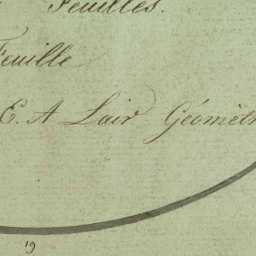 Feuilles.
Feuille
E. A Lair Géomètr
19